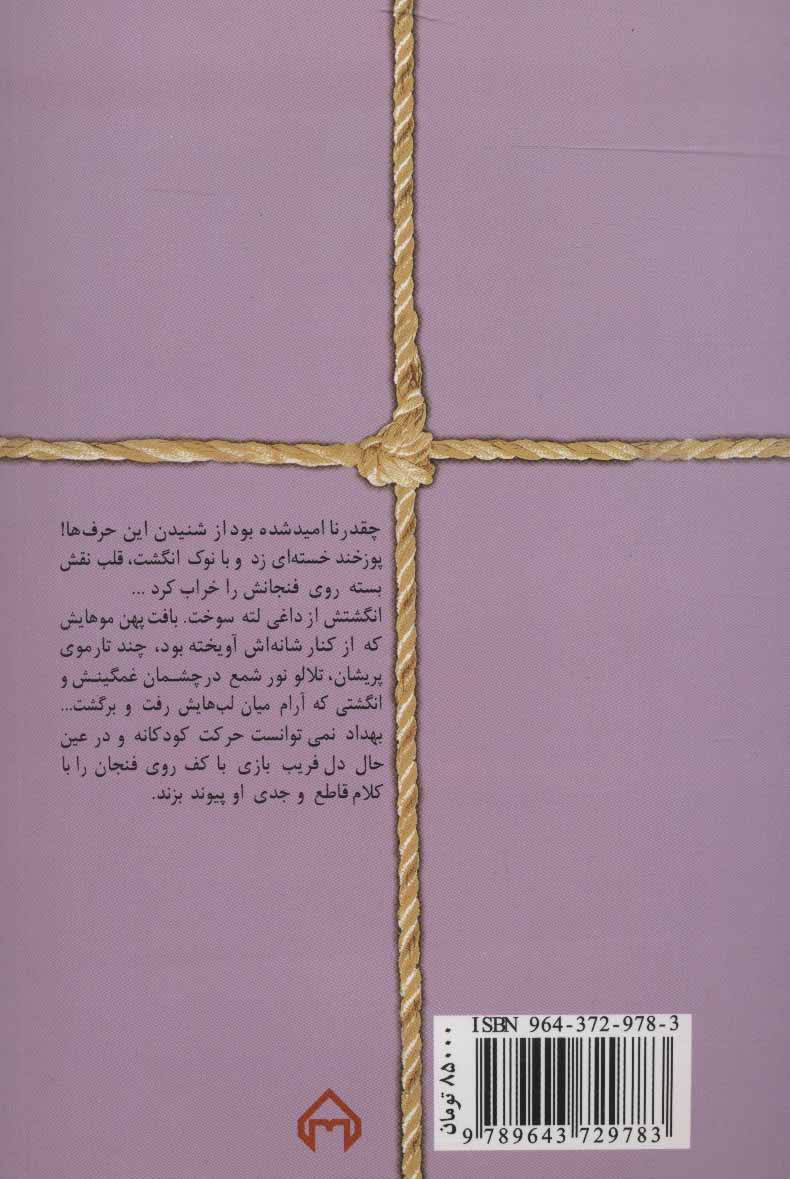 چقدرنا امیدشده بود از شنیدن این حرف‌ها!
پوزخند خسته‌ای زد و با نوک انگشت، قلب نقش
بسته روی فنجانش را خراب کرد ...
انگشتش از داغی لته سوخت. بافت پهن موهایش
که از کنار شانه‌اش آویخته بود، چند تارموی
پریشان، تلالو نور شمع درچشمان غمگینش و
انگشتی که آرام میان لب‌هایش رفت و برگشت...
بهداد نمی توانست حرکت کودکانه و در عین
حال دل فریب بازی با کف روی فنجان را با
کلام قاطع و جدی او پیوند بزند.
ISBN 964-372-978-3
۸۵۰۰۰ تومان
9 789643 729783